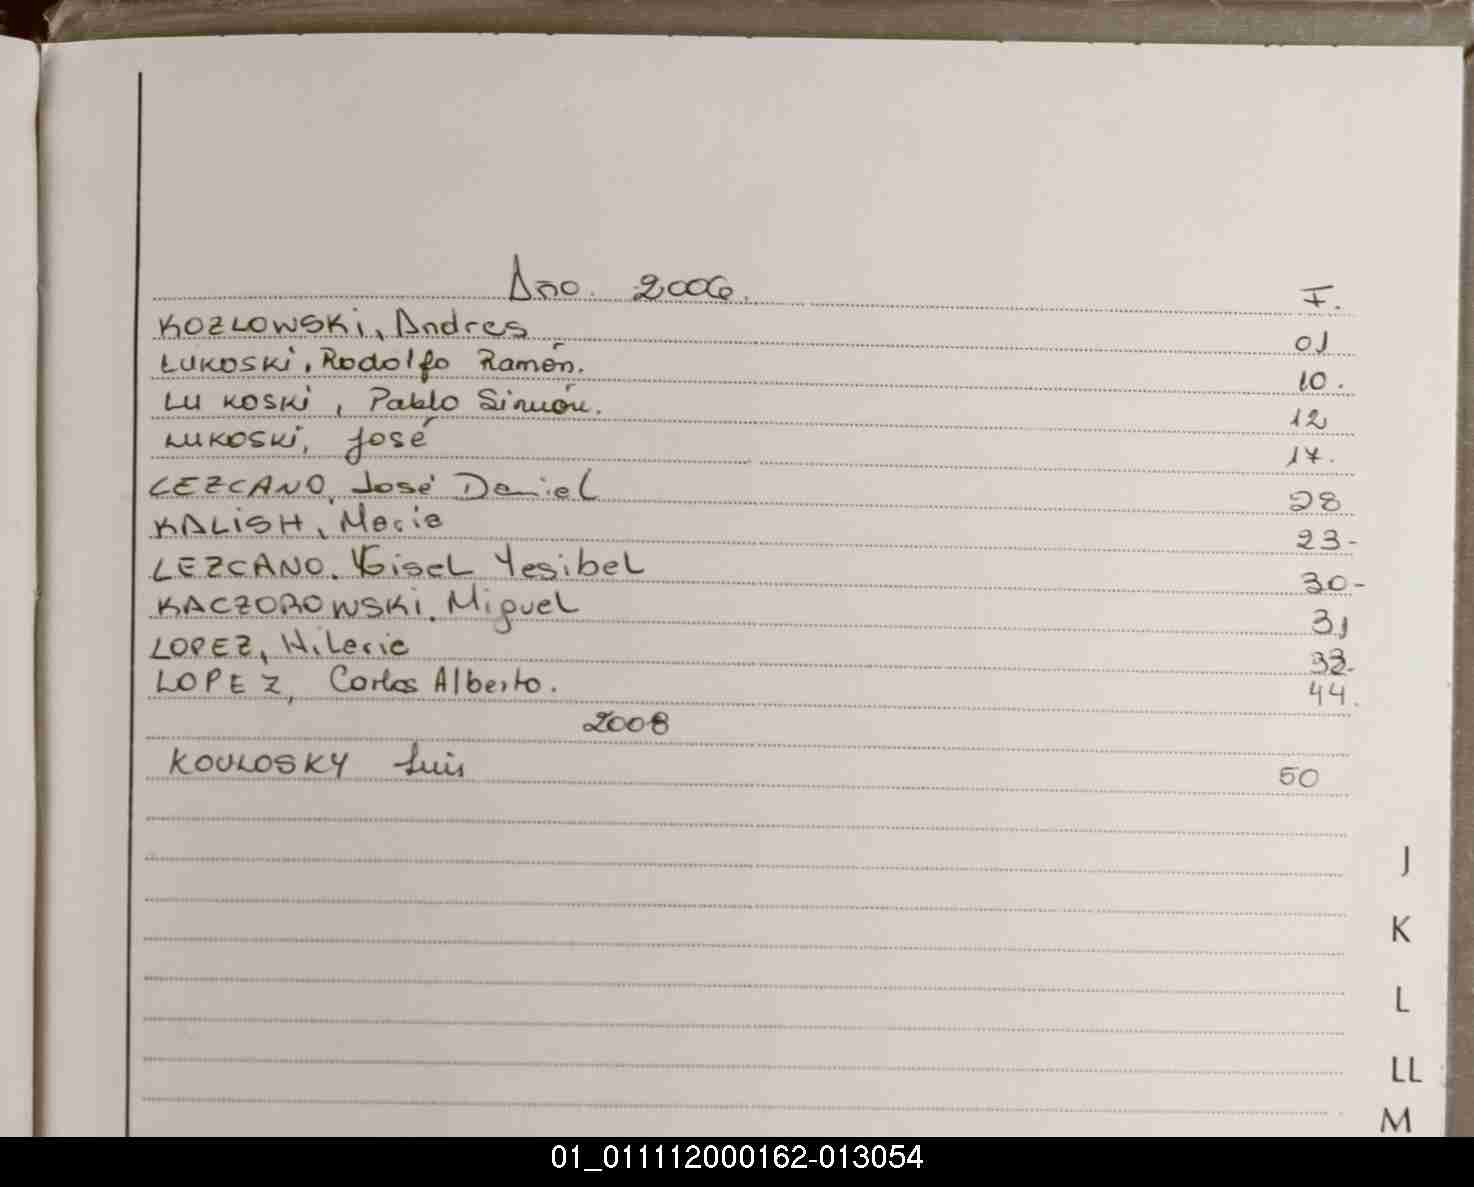 Año. 2006. F.
KOZLOWSKi, Andres 01
LUKOSKi, Rodolfo Ramón. 10.
LU KOSKi, Pablo Simón. 12
LUKOSKi, José 17.
LEZCANO, José Daniel 28
KALiSH, Maria 23-
LEZCANO. Gisel Yesibel 30-
KACZOROWSKi. Miguel 31
LOPEZ, Hilaria 33.
LOPEZ, Carlos Alberto. 44.
2008
KOULOSKY Luis 50
J
K
L
LL
M
01_011112000162-013054